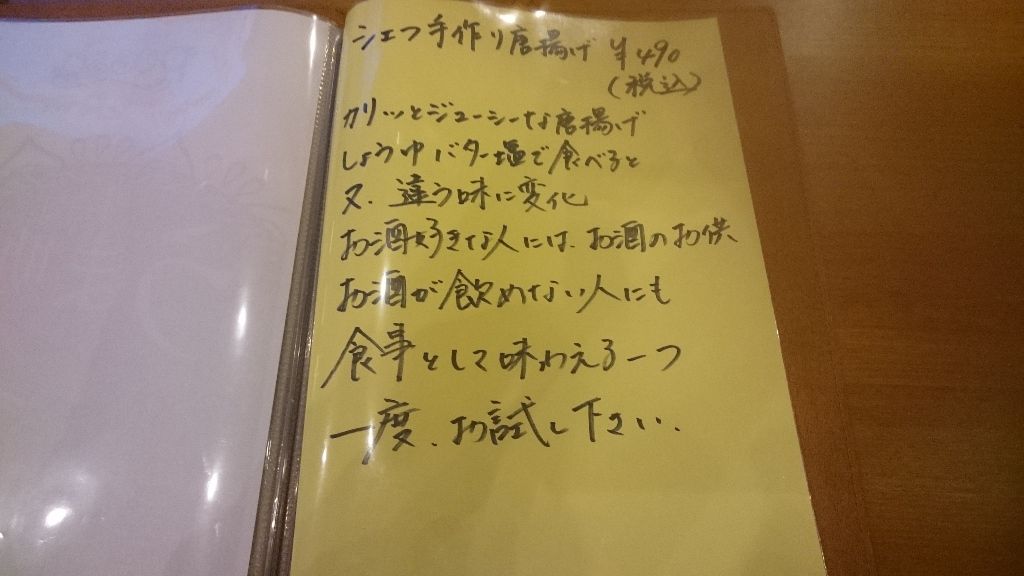 シェフ手作り唐揚げ ¥490
(税込)
カリッとジューシーな唐揚げ
しょうゆバター塩で食べると
又、違う味に変化
お酒好きな人には、お酒のお供
お酒が飲めない人にも
食事として味わえる一つ
一度、お試し下さい、